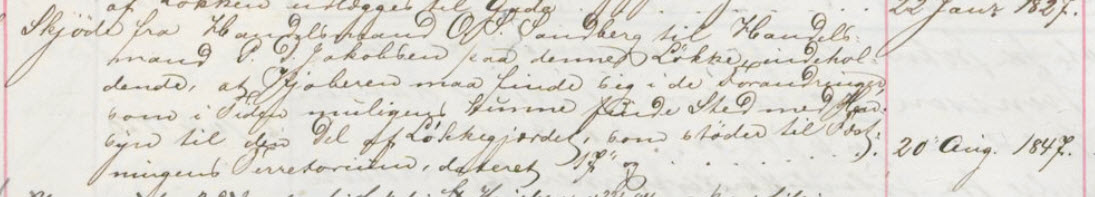 af Løkken udlægges til Gade . . . . . . . 22 Janr 1827.
Skjöde fra Handelsmand O. S. Sandberg til Handels-
mand P. D. Jakobsen paa denne Løkke, indehol-
dende, at Kjøberen maa finde sig i de Forandringer,
som i Tiden muligens kunne finde Sted med Hen-
syn til den Del af Løkkegjærdet, som støder til Fæst-
ningens Terretorium, dateret 17' og . . . . . . . 20 Aug. 1847.